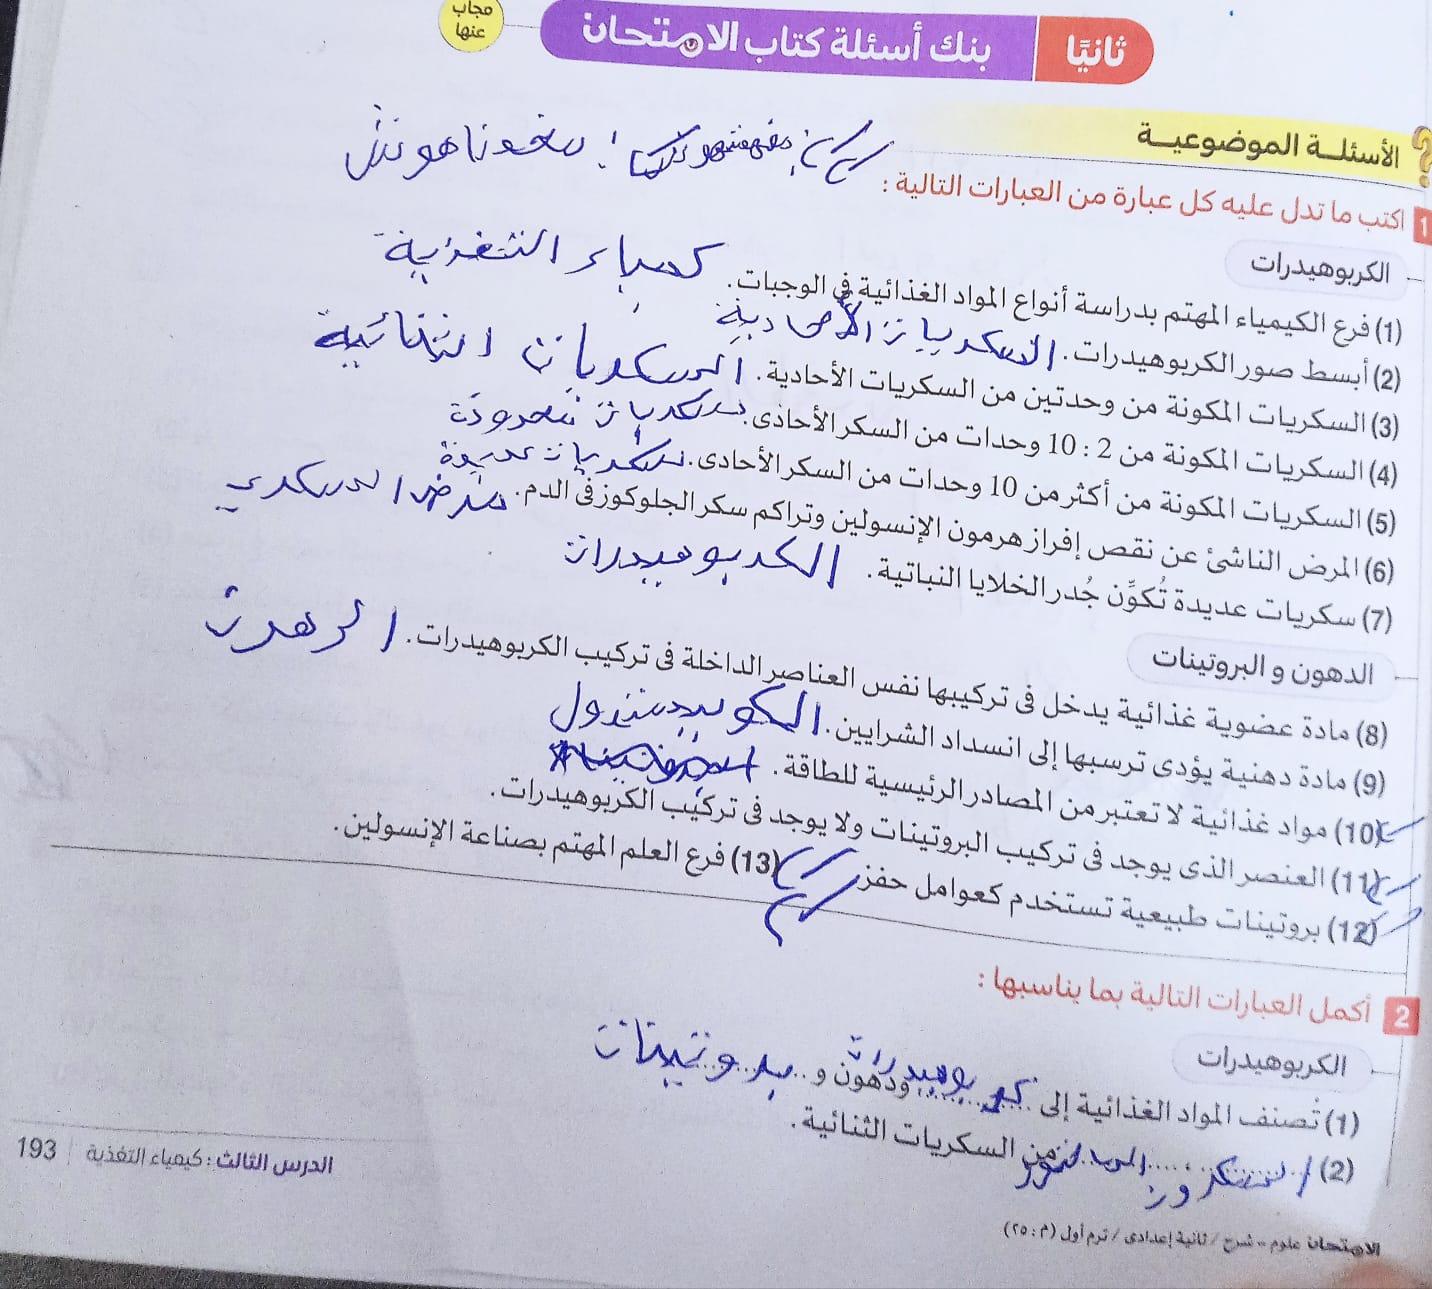 مجاب عنها
ثانيًا بنك أسئلة كتاب الامتحان
الأسئلة الموضوعية
1 اكتب ما تدل عليه كل عبارة من العبارات التالية :
الكربوهيدرات
(1) فرع الكيمياء المهتم بدراسة أنواع المواد الغذائية فى الوجبات. كيمياء التغذية
(2) أبسط صور الكربوهيدرات. السكريات الأحادية
(3) السكريات المكونة من وحدتين من السكريات الأحادية. السكريات الثنائية
(4) السكريات المكونة من 2 : 10 وحدات من السكر الأحادى. سكريات محدودة
(5) السكريات المكونة من أكثر من 10 وحدات من السكر الأحادى. سكريات عديدة
(6) المرض الناشئ عن نقص إفراز هرمون الإنسولين وتراكم سكر الجلوكوز فى الدم. مرض السكري
(7) سكريات عديدة تُكوِّن جُدر الخلايا النباتية. الكربوهيدرات
الدهون و البروتينات
(8) مادة عضوية غذائية يدخل فى تركيبها نفس العناصر الداخلة فى تركيب الكربوهيدرات.
(9) مادة دهنية يؤدى ترسبها إلى انسداد الشرايين. الكوليسترول
(10) مواد غذائية لا تعتبر من المصادر الرئيسية للطاقة.
(11) العنصر الذى يوجد فى تركيب البروتينات ولا يوجد فى تركيب الكربوهيدرات.
(12) بروتينات طبيعية تستخدم كعوامل حفز. (13) فرع العلم المهتم بصناعة الإنسولين.
2 أكمل العبارات التالية بما يناسبها :
الكربوهيدرات
(1) تُصنف المواد الغذائية إلى كربوهيدرات ودهون و بروتينات
(2) السكروز من السكريات الثنائية.
الدرس الثالث : كيمياء التغذية | 193
الامتحان علوم – شرح / ثانية إعدادى / ترم أول (م : ٢٥)